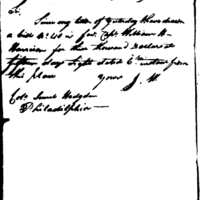 Sir,
Since my letter of yesterday I have drawn
a bill No. 40 in favr. Capt. William H.
Harrison for One thousand Dollars at
fifteen days sight dated 6th instant from
this place
Yours J. W.
Colo. Saml. Hodgdon
Philadelphia